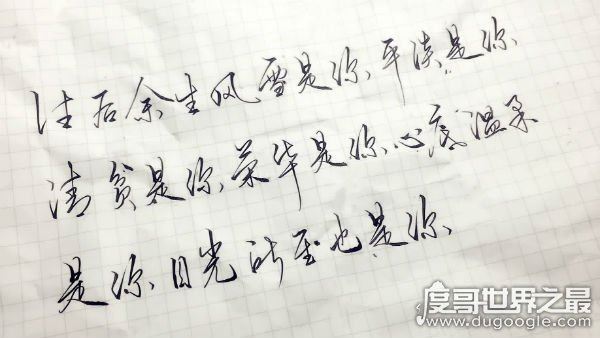 往后余生风雪是你、平淡是你、
清贫是你、荣华是你、心底温柔
是你、目光所至也是你、
度哥世界之最
www.dugoogle.com